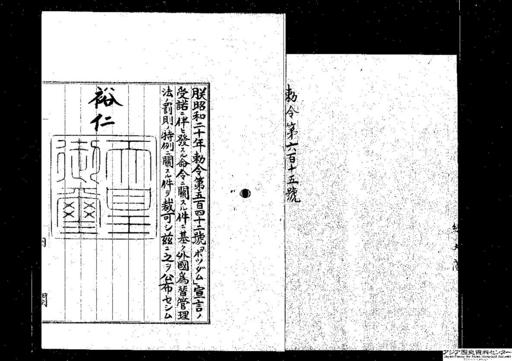 勅令第六百十五號
朕昭和二十年勅令第五百四十二號「ポツダム」宣言ノ
受諾ニ伴ヒ發スル命令ニ關スル件ニ基ク外國為替管理
法ノ罰則ノ特例ニ關スル件ヲ裁可シ茲ニ之ヲ公布セシム
裕仁
天皇
御璽
アジア歴史資料センター